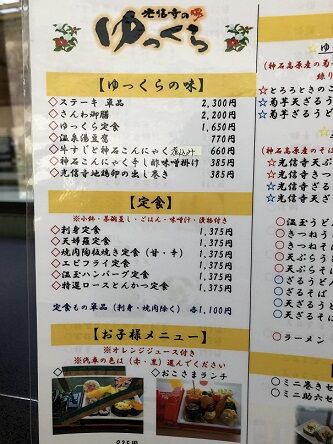 光信寺の湯
ゆっくら
【ゆっくらの味】
◇ステーキ 単品 2,300円
◇さんわ御膳 2,200円
◇ゆっくら定食 1,650円
◇温泉湯豆腐 770円
◇牛すじと神石こんにゃく煮込み 660円
◇神石こんにゃく辛し酢味噌掛け 385円
◇光信寺地鶏卵の出し巻き 385円
【定食】
※小鉢・茶碗蒸し・ごはん・味噌汁・漬物付き
◇刺身定食 1,375円
◇天婦羅定食 1,375円
◇焼肉陶板焼き定食(甘・辛) 1,375円
◇エビフライ定食 1,375円
◇温玉ハンバーグ定食 1,375円
◇特選ロースとんかつ定食 1,375円
定食もの単品(刺身・焼肉除く) 各1,100円
【お子様メニュー】
※オレンジジュース付き
※汽車の色は(赤・黒)選んでください
◇おこさまランチ
(神石高原産の
☆とろろときの
☆
☆
(神石高原産のそば
☆光信寺
☆光信寺
☆光信寺
○温玉うどん
○きつねうど
○きつねそ
○天ぷらう
○天ぷらそ
○ざるうどん
○ざるそば
○天ざるうど
○天ざるそ
○ラーメン
【ミニ
○ミニ巻きセ
○ミニ助六セ